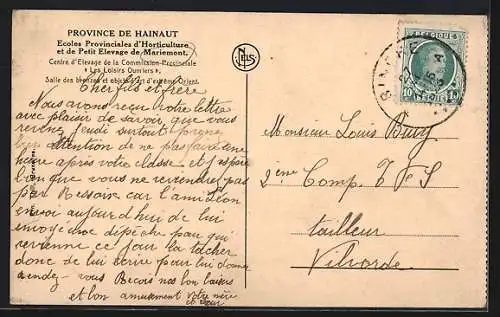 PROVINCE DE HAINAUT
Ecoles Provinciales d'Horticulture
et de Petit Elevage de Mariemont.
Centre d'Elevage de la Commission Provinciale
« Les Loisirs Ouvriers ».
Salle des bronzes et objets d'art d'extrême Orient.
NELS
BINCHE
BELGIQUE
10 10
Cher fils et frère
Nous avons reçu votre lettre
avec plaisir de savoir que vous
revenez jeudi surtout
attention de ne pas faire une
heure après votre classe et j'espère
que vous ne reviendrez pas
par car l'ami Léon
envoi aujourd'hui de lui
envoyé une dépêche pour qui
revienne ce jour la tacher
donc de lui écrire pour lui donner
rendez-vous nos bon baisers
et bon amusement votre mère
et sœur
Monsieur Louis
2ème Comp. T F S
tailleur
Vilvorde